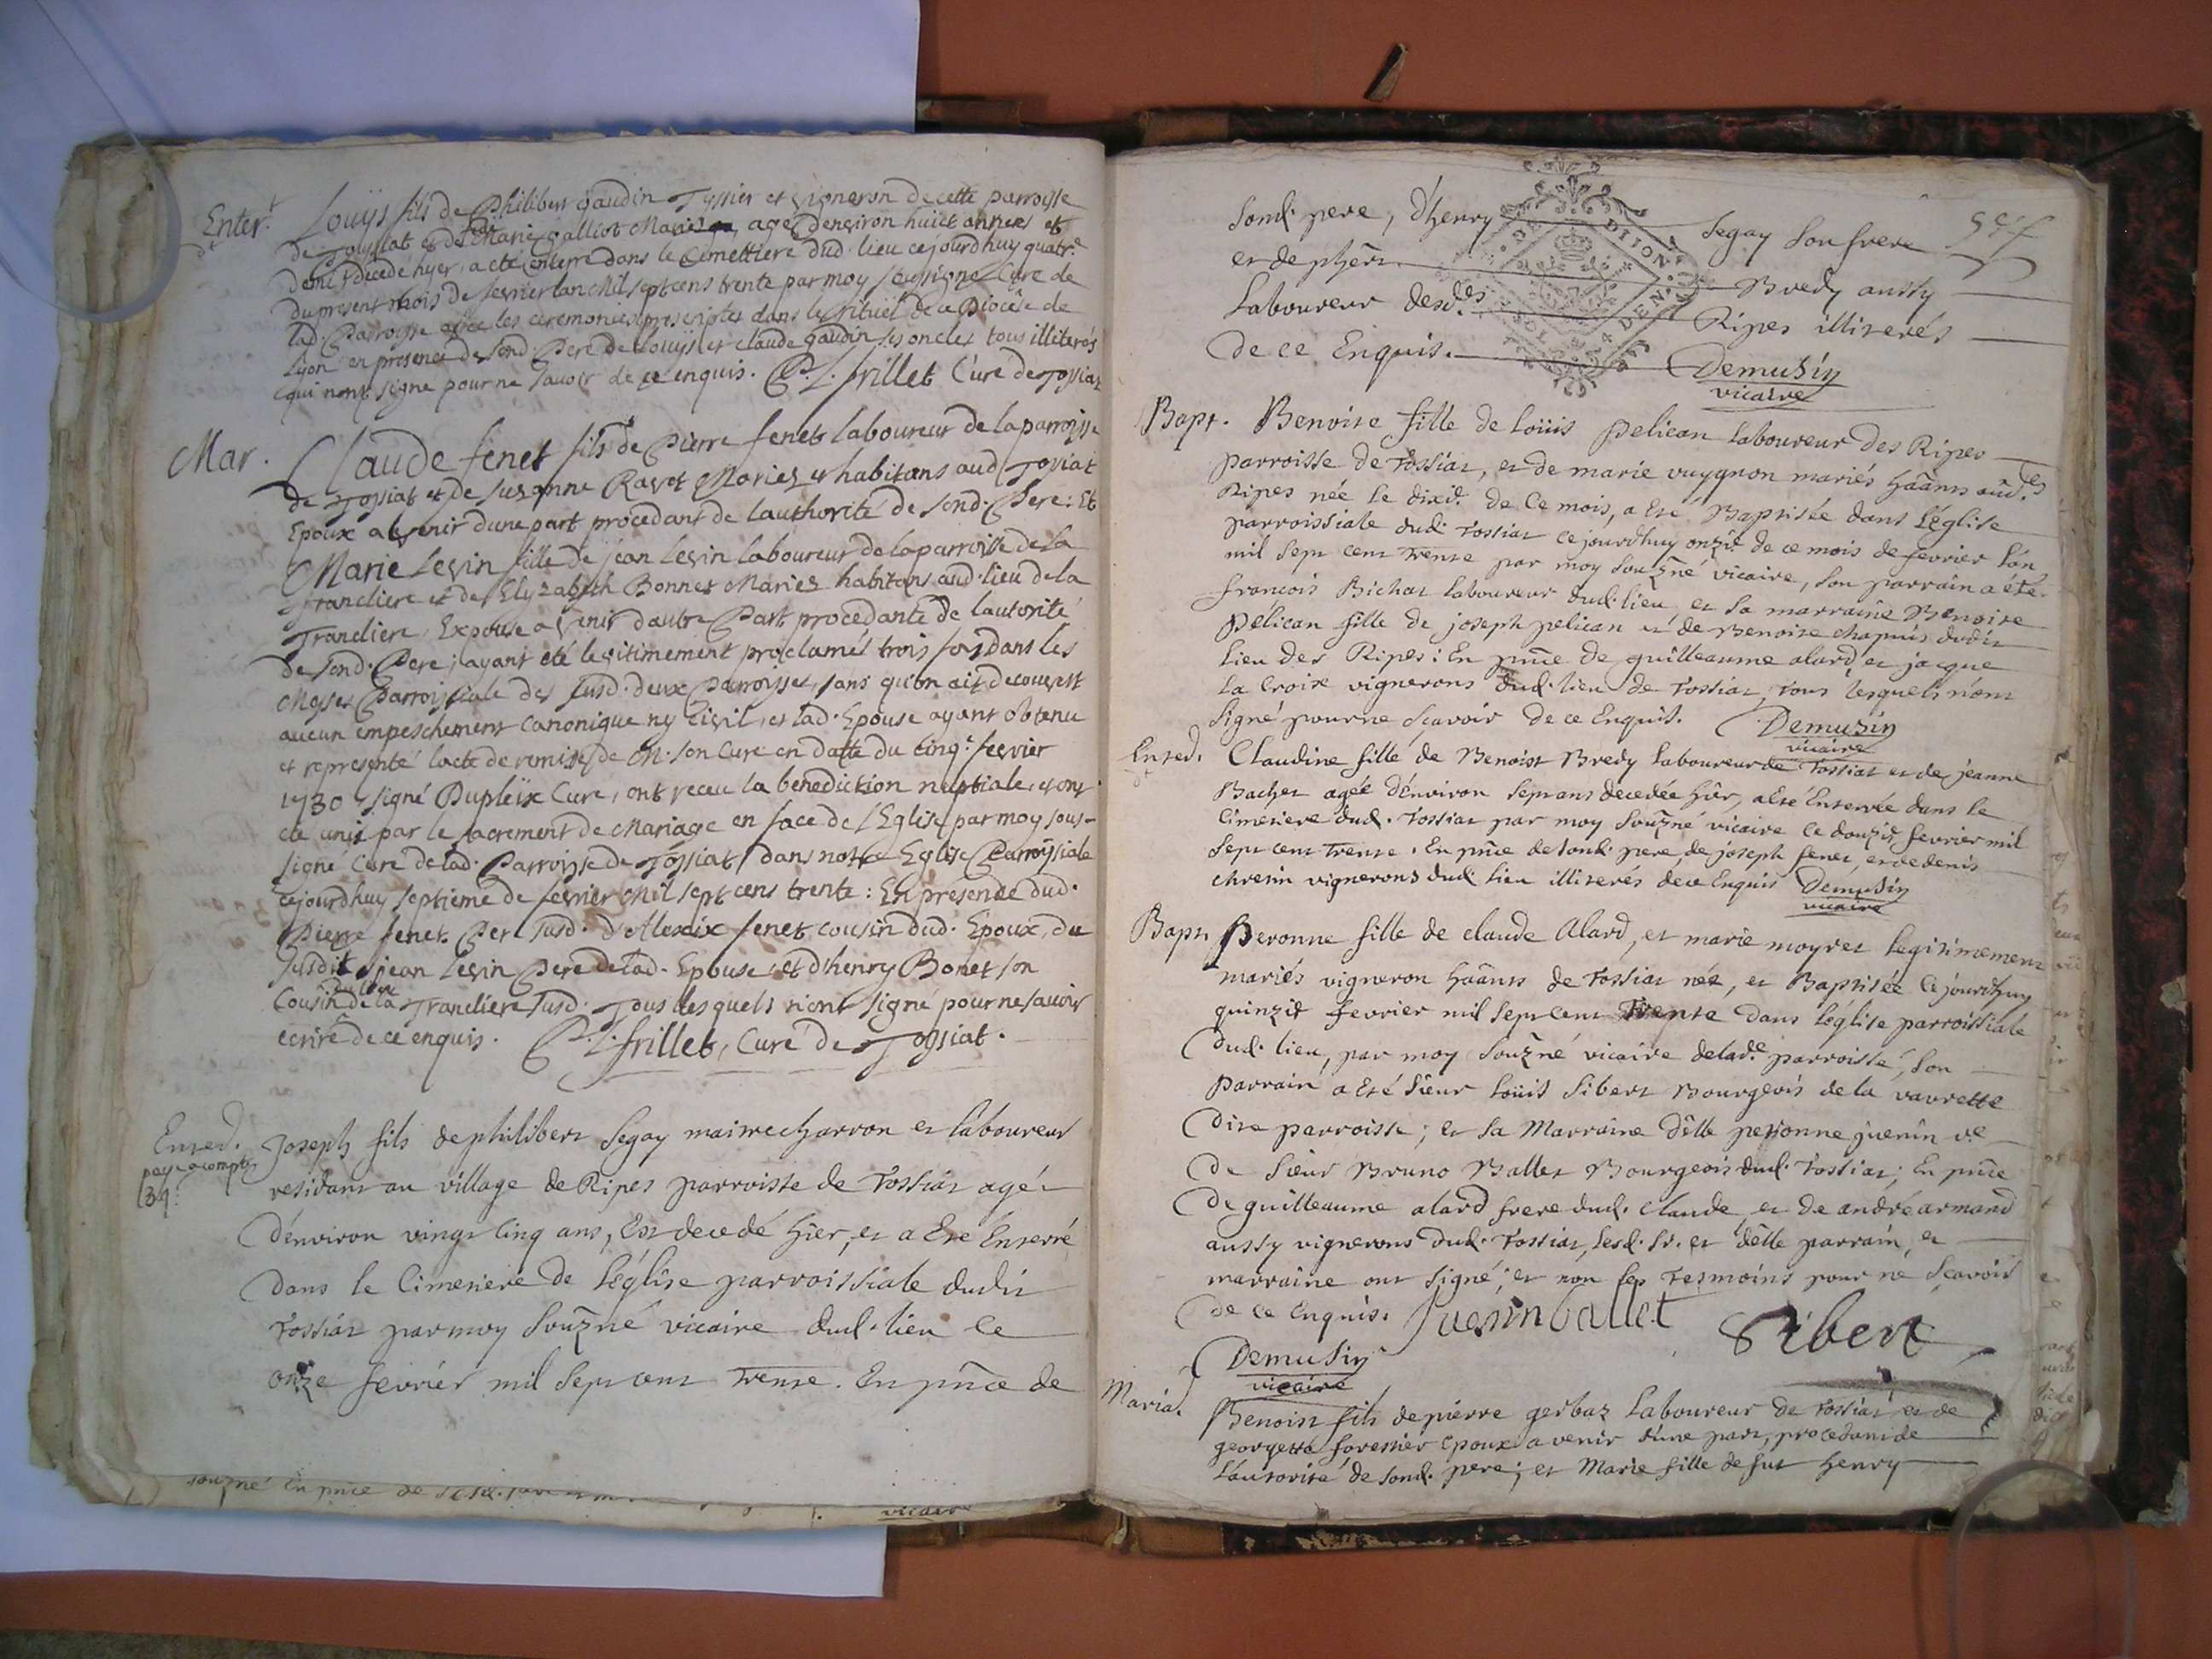 Enter.t
Louÿs fils de Philibert gaudin Tyssier et vigneron de cette parroisse
de Tossiat et de Marie galliot Mariés agé denviron huict années et
demi decedé hyer, a eté enterré dans le Cemettiere dud. lieu cejourdhuy quatr.e
du present mois de fevrier lan Mil sept cens trente par moy soussigné Curé de
lad. Parroisse avec les ceremonies prescriptes dans le rituel de ce Diocèse de
Lyon en presence de sond. Pere de Louÿs et claude gaudin ses oncles tous illiterés
qui nont signé pour ne savoir de ce enquis. P. L. frillet Curé de Tossiat
Mar.
Claude fenet fils de Pierre fenet laboureur de la parroisse
de Tossiat et de Suzanne Ravet Mariez et habitans aud Tossiat
Epoux a venir dune part procedant de lauthorité de sond. Pere: Et
Marie Levin fille de jean Levin laboureur de la parroisse de la
Trancliere et de Elyzabeth Bonnet Mariez habitans aud. lieu de la
Trancliere, Expouse a venir dautre Part procedante de lautorité
de sond. Pere; ayant eté legitimement proclamés trois fois dans les
Messes Parroissiale des susd. deux Parroisses, sans qu'on ait decouvert
aucun empeschement canonique ny Civil, et lad. Epouse ayant obtenu
et representé lacte de remise de M. son Curé en datte du cinq.e fevrier
1730 signé Dupleix Curé, ont receu la benediction nuptiale, et ont
eté unis par le sacrement de Mariage en face de l'Eglise par moy sous-
signé Curé de lad. Parroisse de Tossiat dans notre Eglise Parroissiale
cejourdhuy septieme de fevrier Mil sept cens trente: En presence dud.
Pierre fenet Pere susd. d'Alexix fenet cousin dud. Epoux, du
susdit jean Levin Pere de lad. Epouse, et d'henry Bonet son
Cousin du lieu de la Trancliere susd. Tous lesquels n'ont signé pour ne savoir
ecrire de ce enquis. P. L. frillet, Curé de Tossiat.
Enred.
paye a compte
Joseph fils de philibert Segay maitre charron et laboureur
residant au village de Ripes parroisse de Tossiat agé
d'environ vingt cinq ans, Est decedé hier, et a Eté Enterré
dans le Cimetiere de l'église parroissiale dudit
Tossiat par moy souzñé vicaire dud. lieu le
onze fevrier mil sept cent trente. En pñce de
souzné En pnce de
vicaire
sond. pere, d'henry Segay son frere
et de phert. Bredy aussy
Laboureur desd.es Ripes illiterés
de ce Enquis. Demusin
vicaire
DIJON
Bapt.
Benoite fille de Loüis Pelican Laboureur des Ripes
parroisse de Tossiat, et de marie vuygnon mariés haânts aûd.es
Ripes née le dixie. de Ce mois, a Eté Baptisée dans l'église
parroissiale dud. Tossiat cejourdhuy onzie. de ce mois de fevrier l'an
mil sept cent trente par moy souzñé vicaire, son parrain a été
francois Bichat laboureur dud. lieu et sa marraine Benoite
Pélican fille de joseph pelican et de Benoite chapuis dudit
lieu des Ripes: En pnce de guilleaume alard, et jacque
La Croix vignerons dud. lieu de Tossiat, tous lesquels n'ont
signé pour ne sçavoir de ce Enquis. Demusin
vicaire
Ented.
Claudine fille de Benoist Bredy laboureur de Tossiat et de jeanne
Bachet agée d'environ sept ans decedée hier, a Eté Enterrée dans le
Cimetiere dud. Tossiat par moy souzñé vicaire le douzie. fevrier mil
sept cent trente. En pñce de sond. pere, de joseph fenet, et de denis
chretin vignerons dud. lieu illiterés de ce Enquis Demusin
vicaire
Bapt.
Peronne fille de claude Alard, et marie moyret legitimement
mariés vigneron haânts de Tossiat née, et Baptisée Cejourdhuy
quinzie fevrier mil sept cent Trente dans l'église parroissiale
dud. lieu, par moy souzñé vicaire de lad.e parroisse, son
parrain a Eté sieur Loüis Sibert Bourgeois de la vavrette
dite parroisse; et sa Marraine dêlle peronne juenin v.e
de sieur Bruno Ballet Bourgeois dud. Tossiat; En pñce
de guilleaume alard frere dud. Claude, et de andré armand
aussy vignerons dud. Tossiat, lesd. sr. et dêlle parrain, et
marraine ont signé; et non les Tesmoins pour ne sçavoir
de ce enquis. Juenin ballet Sibert
Demusin
vicaire
Maria.
Benoist fils de pierre gerbaz Laboureur de Tossiat et de
georgette forestier epoux a venir d'une part, procedant de
l'autorité de sond. pere; et Marie fille de fut henry